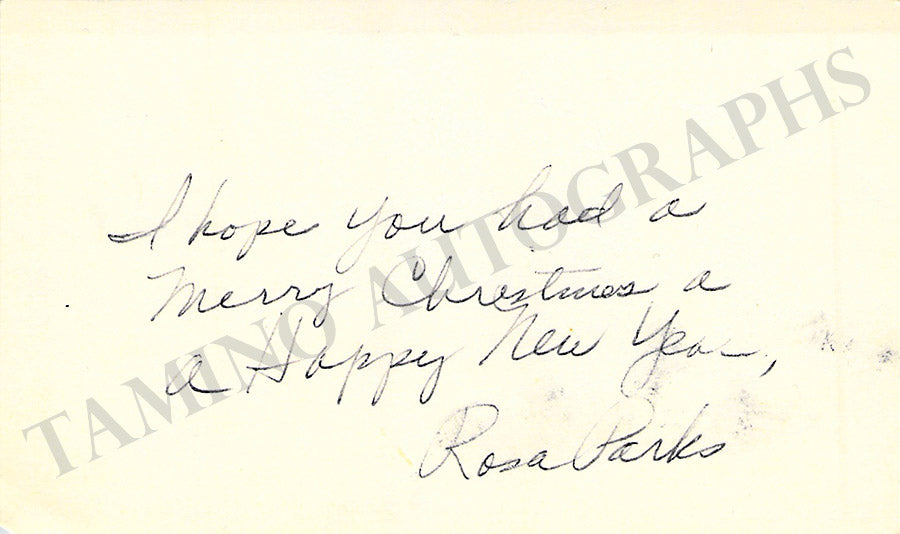 I hope you had a
Merry Christmas a
a Happy New Year,
Rosa Parks
TAMINO AUTOGRAPHS